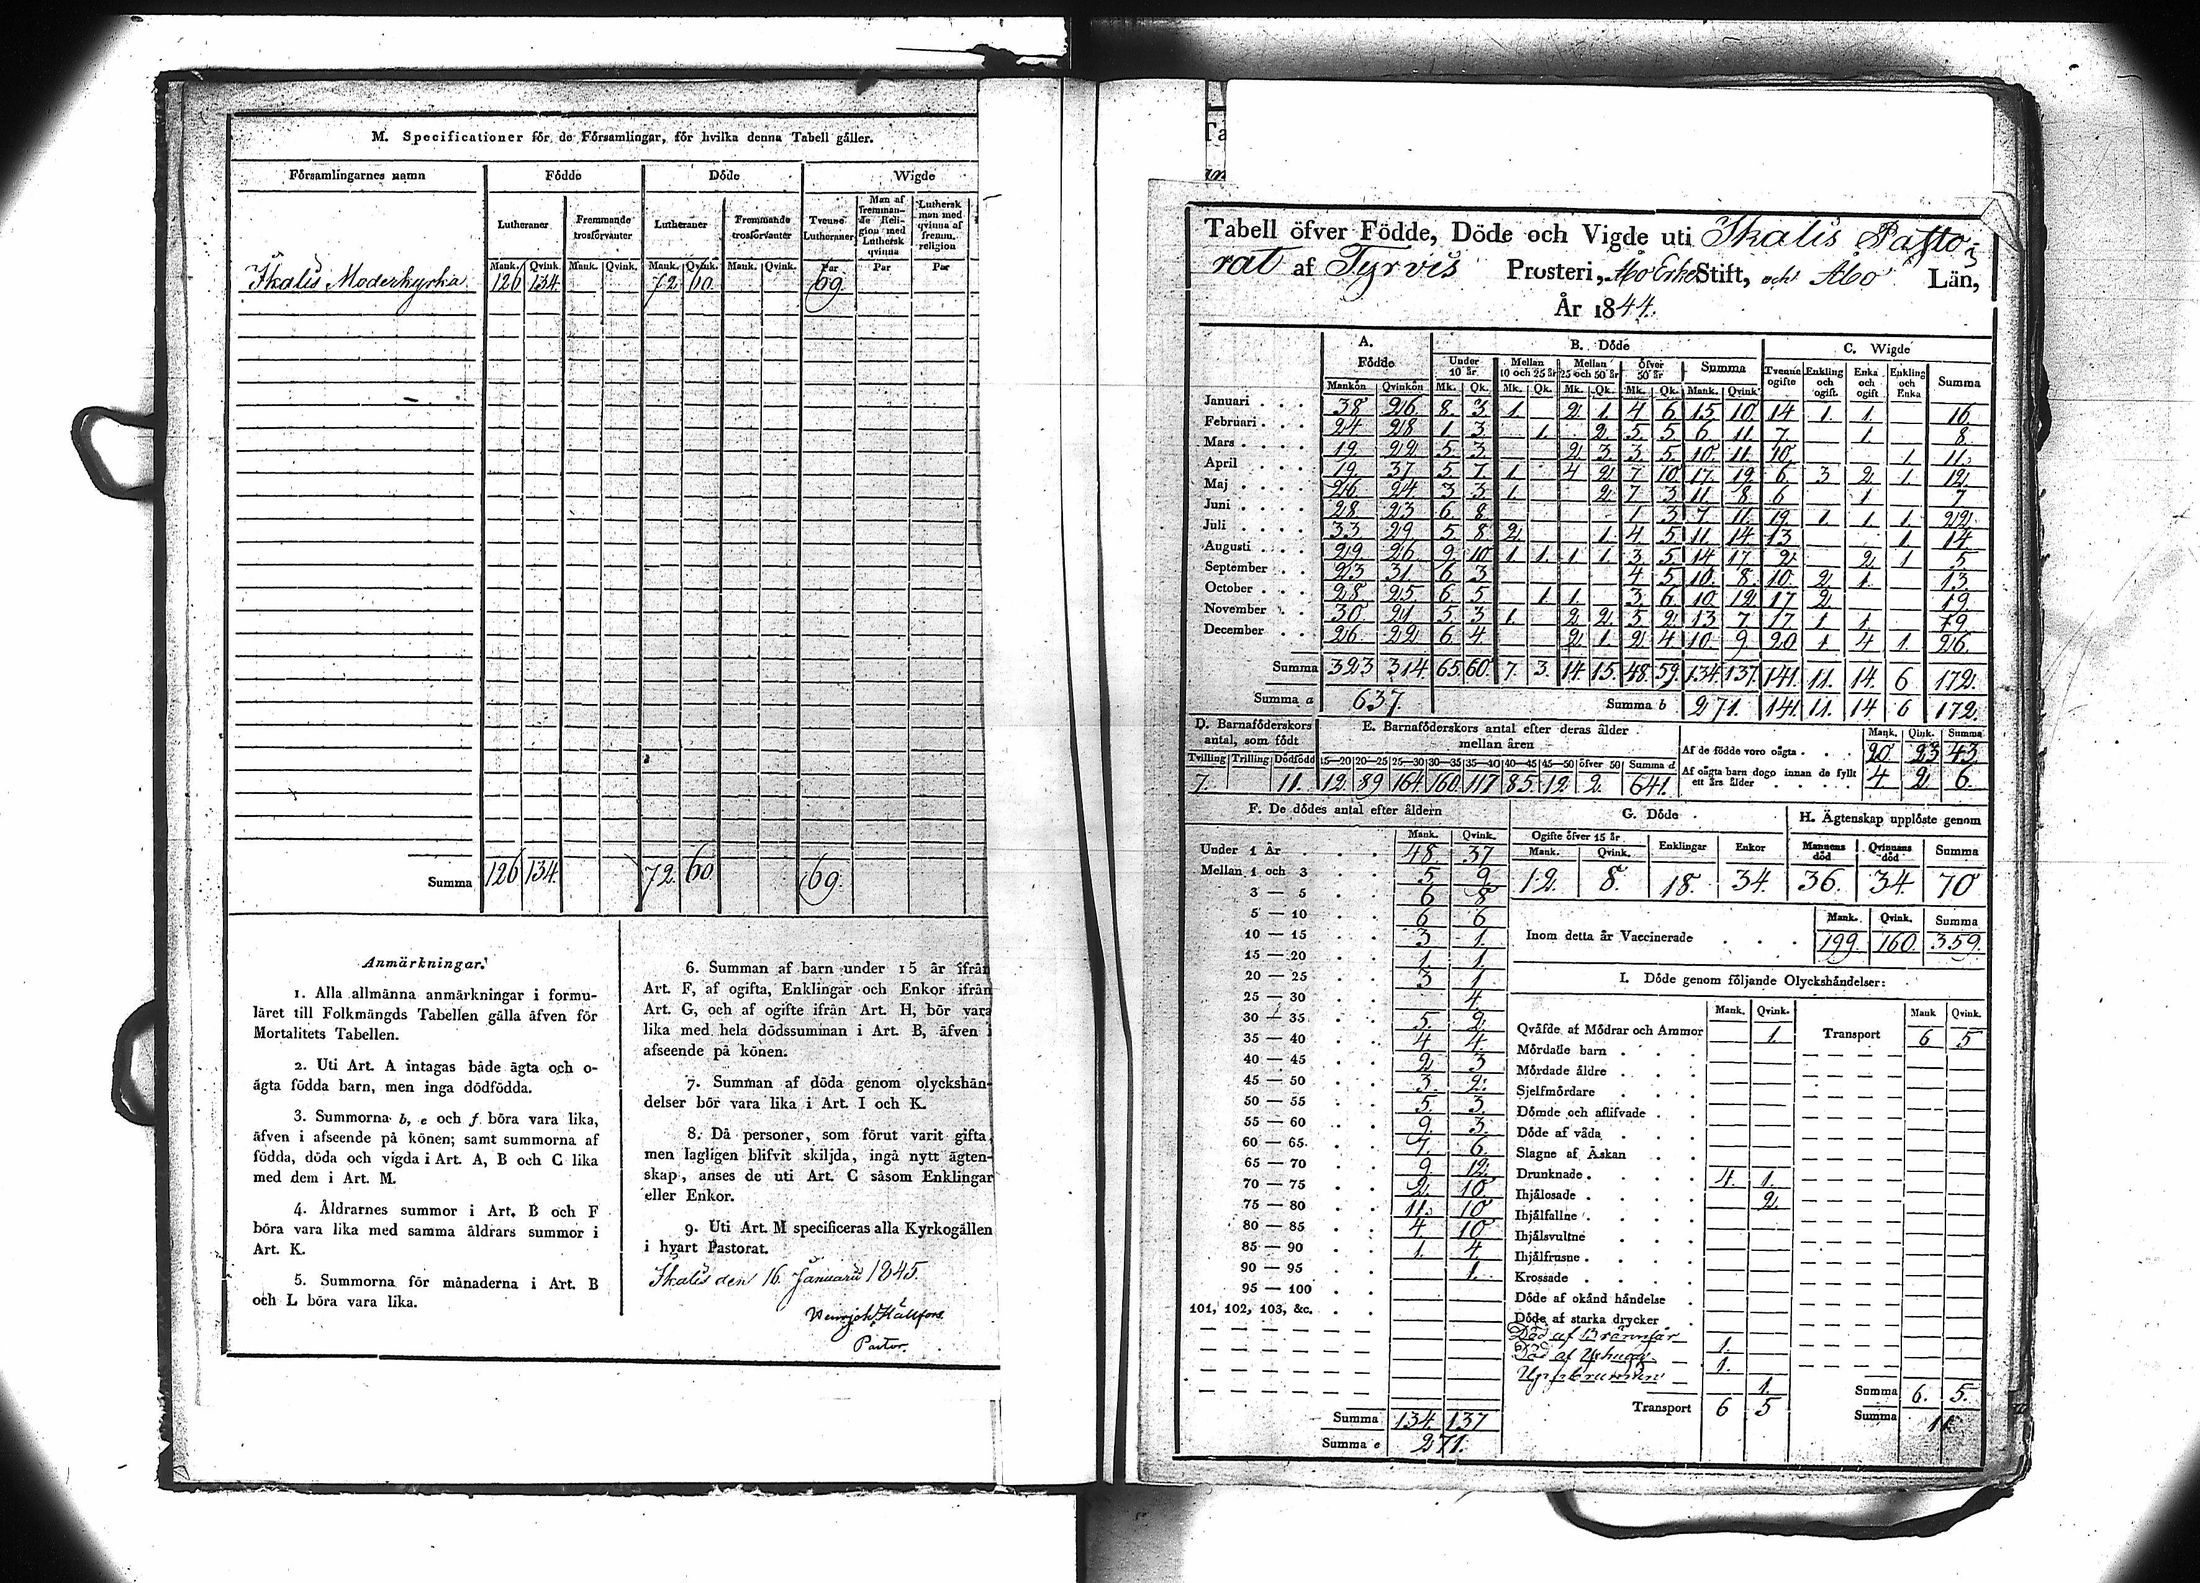 M. Specificationer för de Församlingar, för hvilka denna Tabell gäller.
Församlingarnes namn | Födde | Döde | Wigde
Lutheraner | Fremmande trosförvanter | Lutheraner | Fremmande trosförvanter | Tvenne Lutheraner | Man af fremmande Religion med Luthersk qvinna | Luthersk man med qvinna af fremm. religion
Mank. Qvink. Mank. Qvink. Mank. Qvink. Mank. Qvink. Par Par Par
Ikalis Moderkyrka 126 134. 72 60. 69
Summa 126 134. 72. 60 69.
Anmärkningar.
1. Alla allmänna anmärkningar i formu-
läret till Folkmängds Tabellen gälla äfven för
Mortalitets Tabellen.
2. Uti Art. A intagas både ägta och o-
ägta födda barn, men inga dödfödda.
3. Summorna b, e och f böra vara lika,
äfven i afseende på könen; samt summorna af
födda, döda och vigda i Art. A, B och C lika
med dem i Art. M.
4. Åldrarnes summor i Art. B och F
böra vara lika med samma åldrars summor i
Art. K.
5. Summorna för månaderna i Art. B
och L böra vara lika.
6. Summan af barn under 15 år ifrån
Art. F, af ogifta, Enklingar och Enkor ifrån
Art. G, och af ogifte ifrån Art. H, bör vara
lika med hela dödssumman i Art. B, äfven i
afseende på könen.
7. Summan af döda genom olyckshän-
delser bör vara lika i Art. I och K.
8. Då personer, som förut varit gifta,
men lagligen blifvit skiljda, ingå nytt ägten-
skap, anses de uti Art. C såsom Enklingar
eller Enkor.
9. Uti Art. M specificeras alla Kyrkogällen
i hvart Pastorat.
Ikalis den 16 Januarii 1845.
Pastor.
Tabell öfver Födde, Döde och Vigde uti Ikalis Pasto-
rat af Tyrvis Prosteri, Åbo Erke Stift, och Åbo Län,
År 1844.
A. Födde | B. Döde | C. Wigde
Under 10 år | Mellan 10 och 25 år | Mellan 25 och 50 år | öfver 50 år | Summa | Tvenne ogifte | Enkling och ogift. | Enka och ogift | Enkling och Enka | Summa
Mankön Qvinkön Mk. Qk. Mk. Qk. Mk. Qk. Mk. Qk. Mank. Qvink.
Januari 38 26 8. 3 1. 2 1 4 6 15 10 14 1. 1. 16.
Februari 24 28 1 3 1. 2 5 5 6 11 7. 1. 8.
Mars 19. 22 5 3 2 3 3 5 10 11. 10. 1 11.
April 19. 37 5 7 1. 4 2 7 10 17. 19 6 3 2 1 12
Maj 26 24 3 3 1. 2 7 3 11 8 6 1 7
Juni 28 23 6 8 1 3 7 11. 19. 1 1 1. 22
Juli 33 29 5 8 2 1. 4 5 11 14 13 1. 14
Augusti 29 26 9. 10 1 1. 1 1. 3 5 14 17. 2 2 1 5
September 23 31. 6 3 4 5 10. 8. 10. 2 1. 13.
October 28 25 6 5 1 1. 3 6 10 12 17 2 19.
November 30. 21 5 3 1. 2 2 5 2 13 7 17 1 1. 19.
December 26 22 6 4 2 1. 2 4 10 9 20 1 4 1. 26.
Summa 323 314. 65. 60 7. 3. 14. 15. 48. 59. 134. 137. 141. 11. 14. 6 172.
Summa a 637. Summa b 271. 141. 11. 14 6 172.
D. Barnaföderskors antal, som födt
Tvilling Trilling Dödfödd
7. 11.
E. Barnaföderskors antal efter deras ålder mellan åren
15—20 20—25 25—30 30—35 35—40 40—45 45—50 öfver 50 Summa d
12. 89 164 160. 117 85. 12 2. 641.
Mank. Qink. Summa
Af de födde voro oägta 20 23 43.
Af oägta barn dogo innan de fyllt ett års ålder 4. 2. 6.
F. De dödes antal efter åldern
Mank. Qvink.
Under 1 År 48. 37
Mellan 1 och 3 5 9
3 — 5 6 8
5 — 10 6 6
10 — 15 3 1.
15 — 20 1. 1.
20 — 25 3 1
25 — 30 4
30 — 35 5. 2
35 — 40 4 4.
40 — 45 2 3
45 — 50 3. 2.
50 — 55 5. 3.
55 — 60 9. 3.
60 — 65. 7. 6.
65 — 70 9. 12.
70 — 75 2. 10.
75 — 80 11. 10
80 — 85 4. 10
85 — 90 1. 4.
90 — 95 1.
95 — 100
101, 102, 103, &c.
Summa 134. 137
Summa e 271.
G. Döde
Ogifte öfver 15 år | Enklingar | Enkor
Mank. Qvink.
12. 8. 18. 34.
H. Ägtenskap upplöste genom
Mannens död | Qvinnans död | Summa
36. 34. 70
Mank. Qvink. Summa
Inom detta år Vaccinerade 199. 160. 359.
I. Döde genom följande Olyckshändelser:
Mank. Qvink. Mank Qvink.
Qväfde af Mödrar och Ammor 1. Transport 6 5
Mördade barn
Mördade äldre
Sjelfmördare
Dömde och aflifvade
Döde af våda
Slagne af Åskan
Drunknade 4. 1.
Ihjälosade 2.
Ihjälfallne
Ihjälsvultne
Ihjälfrusne
Krossade
Döde af okänd händelse
Döde af starka drycker
Död af Brännsår 1.
Död af 1.
1.
Transport 6 5
Summa 6. 5.
Summa 11.